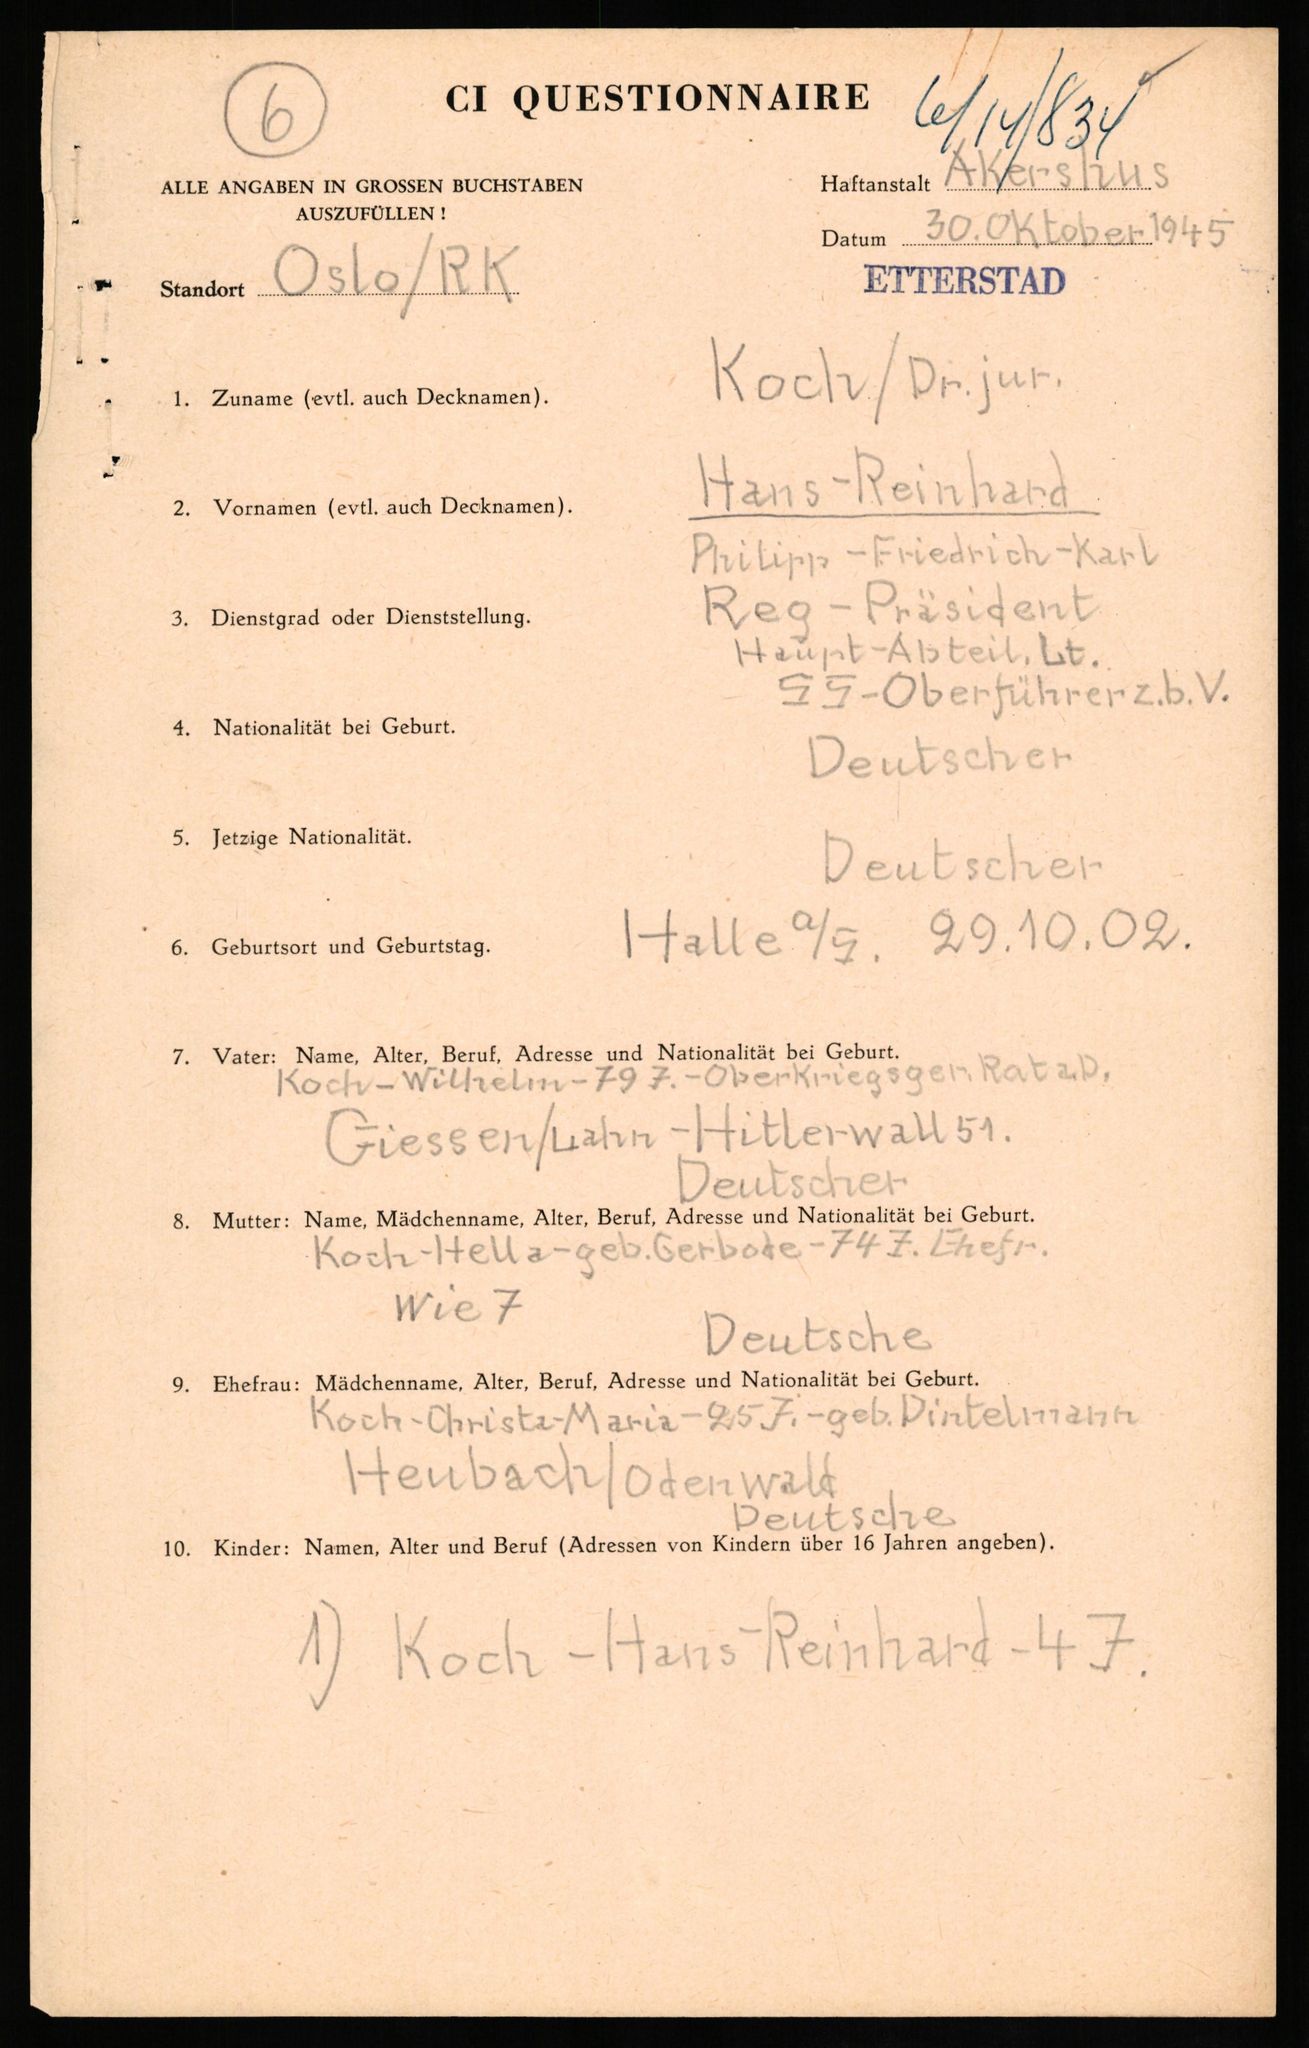 6
CI QUESTIONNAIRE
ALLE ANGABEN IN GROSSEN BUCHSTABEN
AUSZUFÜLLEN !
Haftanstalt Akershus
Datum 30. Oktober 1945
ETTERSTAD
Standort Oslo/RK
1. Zuname (evtl. auch Decknamen).
Koch/Dr. jur.
2. Vornamen (evtl. auch Decknamen).
Hans-Reinhard
Philipp-Friedrich-Karl
3. Dienstgrad oder Dienststellung.
Reg-Präsident
Haupt-Abteil. Lt.
SS-Oberführer z.b.V.
4. Nationalität bei Geburt.
Deutscher
5. Jetzige Nationalität.
Deutscher
6. Geburtsort und Geburtstag.
Halle a/S. 29.10.02.
7. Vater: Name, Alter, Beruf, Adresse und Nationalität bei Geburt.
Koch-Wilhelm-79 J.-Oberkriegsger. Rat a.D.
Giessen/Lahn-Hitlerwall 51.
Deutscher
8. Mutter: Name, Mädchenname, Alter, Beruf, Adresse und Nationalität bei Geburt.
Koch-Hella-geb. Gerbode-74 J. Ehefr.
Wie 7
Deutsche
9. Ehefrau: Mädchenname, Alter, Beruf, Adresse und Nationalität bei Geburt.
Koch-Christa-Maria-25 J.-geb. Dintelmann
Heubach/Odenwald
Deutsche
10. Kinder: Namen, Alter und Beruf (Adressen von Kindern über 16 Jahren angeben).
1) Koch-Hans-Reinhard-4 J.